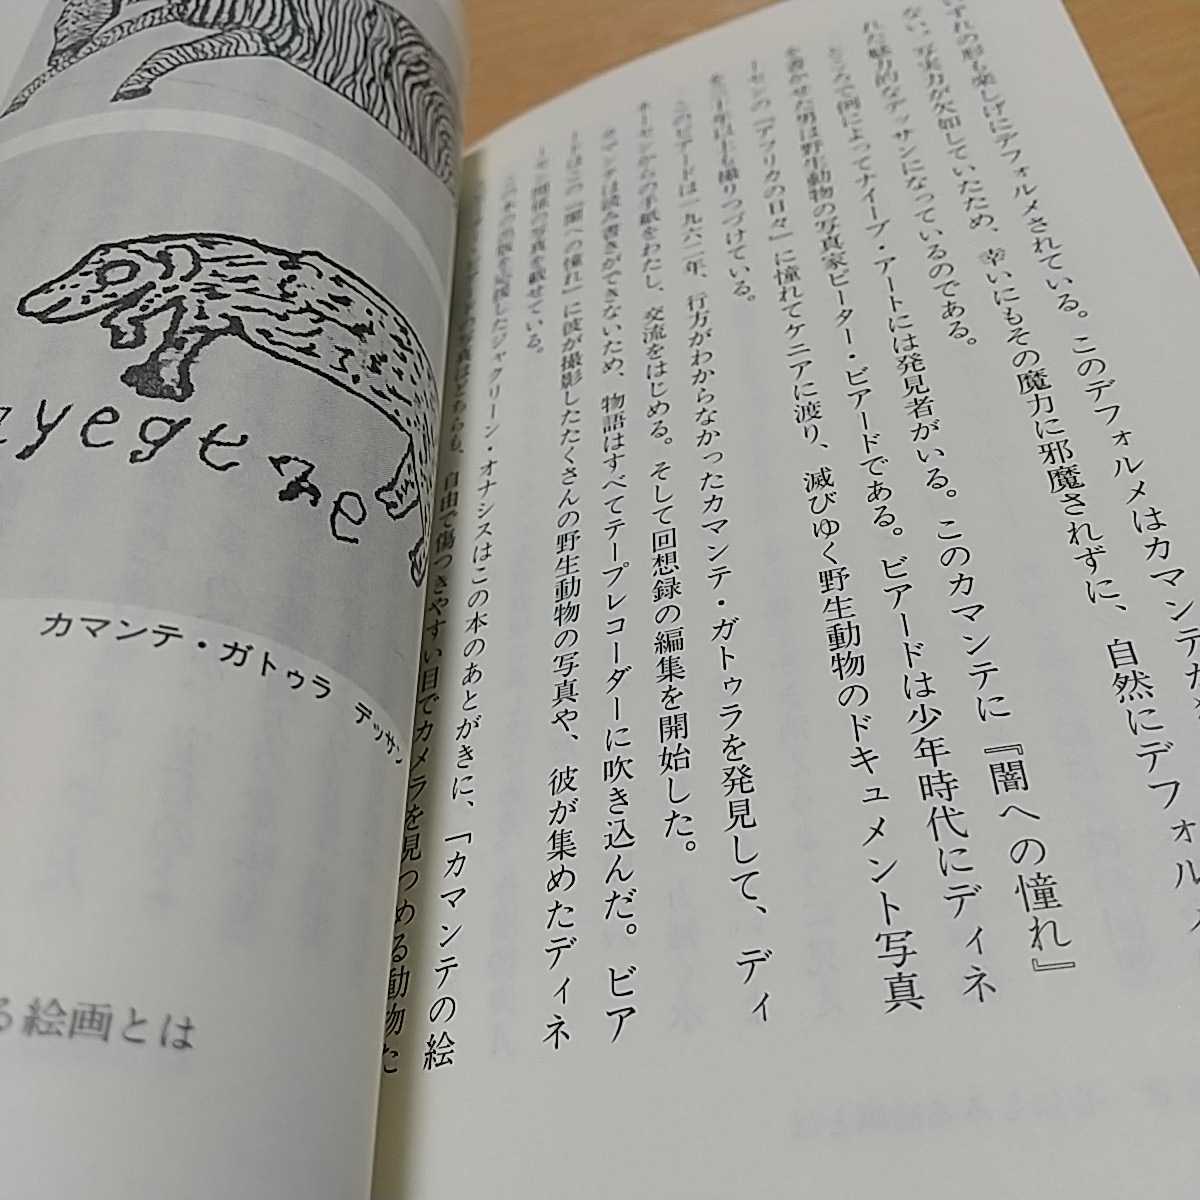 このデフォルメはカマンテが
いずれの形も楽しげにデフォルメされている。
ない。写実力が欠如していたため、幸いにもその魔力に邪魔されずに、自然にデフォルメ
れた魅力的なデッサンになっているのである。
ところで例によってナイーブ・アートには発見者がいる。このカマンテに『闇への憧れ』
を書かせた男は野生動物の写真家ピーター・ビアードである。ビアードは少年時代にディネ
ーセンの『アフリカの日々』に憧れてケニアに渡り、滅びゆく野生動物のドキュメント写真
を二十年以上も撮りつづけている。
このビアードは一九六二年、行方がわからなかったカマンテ・ガトゥラを発見して、ディ
ネーセンからの手紙をわたし、交流をはじめる。そして回想録の編集を開始した。
カマンテは読み書きができないため、物語はすべてテープレコーダーに吹き込んだ。ビア
ードはこの『闇への憧れ』に彼が撮影したたくさんの野生動物の写真や、彼が集めたディネ
ーセン関係の写真を載せている。
この本の出版を応援したジャクリーン・オナシスはこの本のあとがきに、「カマンテの絵
の写真はどちらも、自由で傷つきやすい目でカメラを見つめる動物た
yegene
カマンテ・ガトゥラ デッサン
る絵画とは